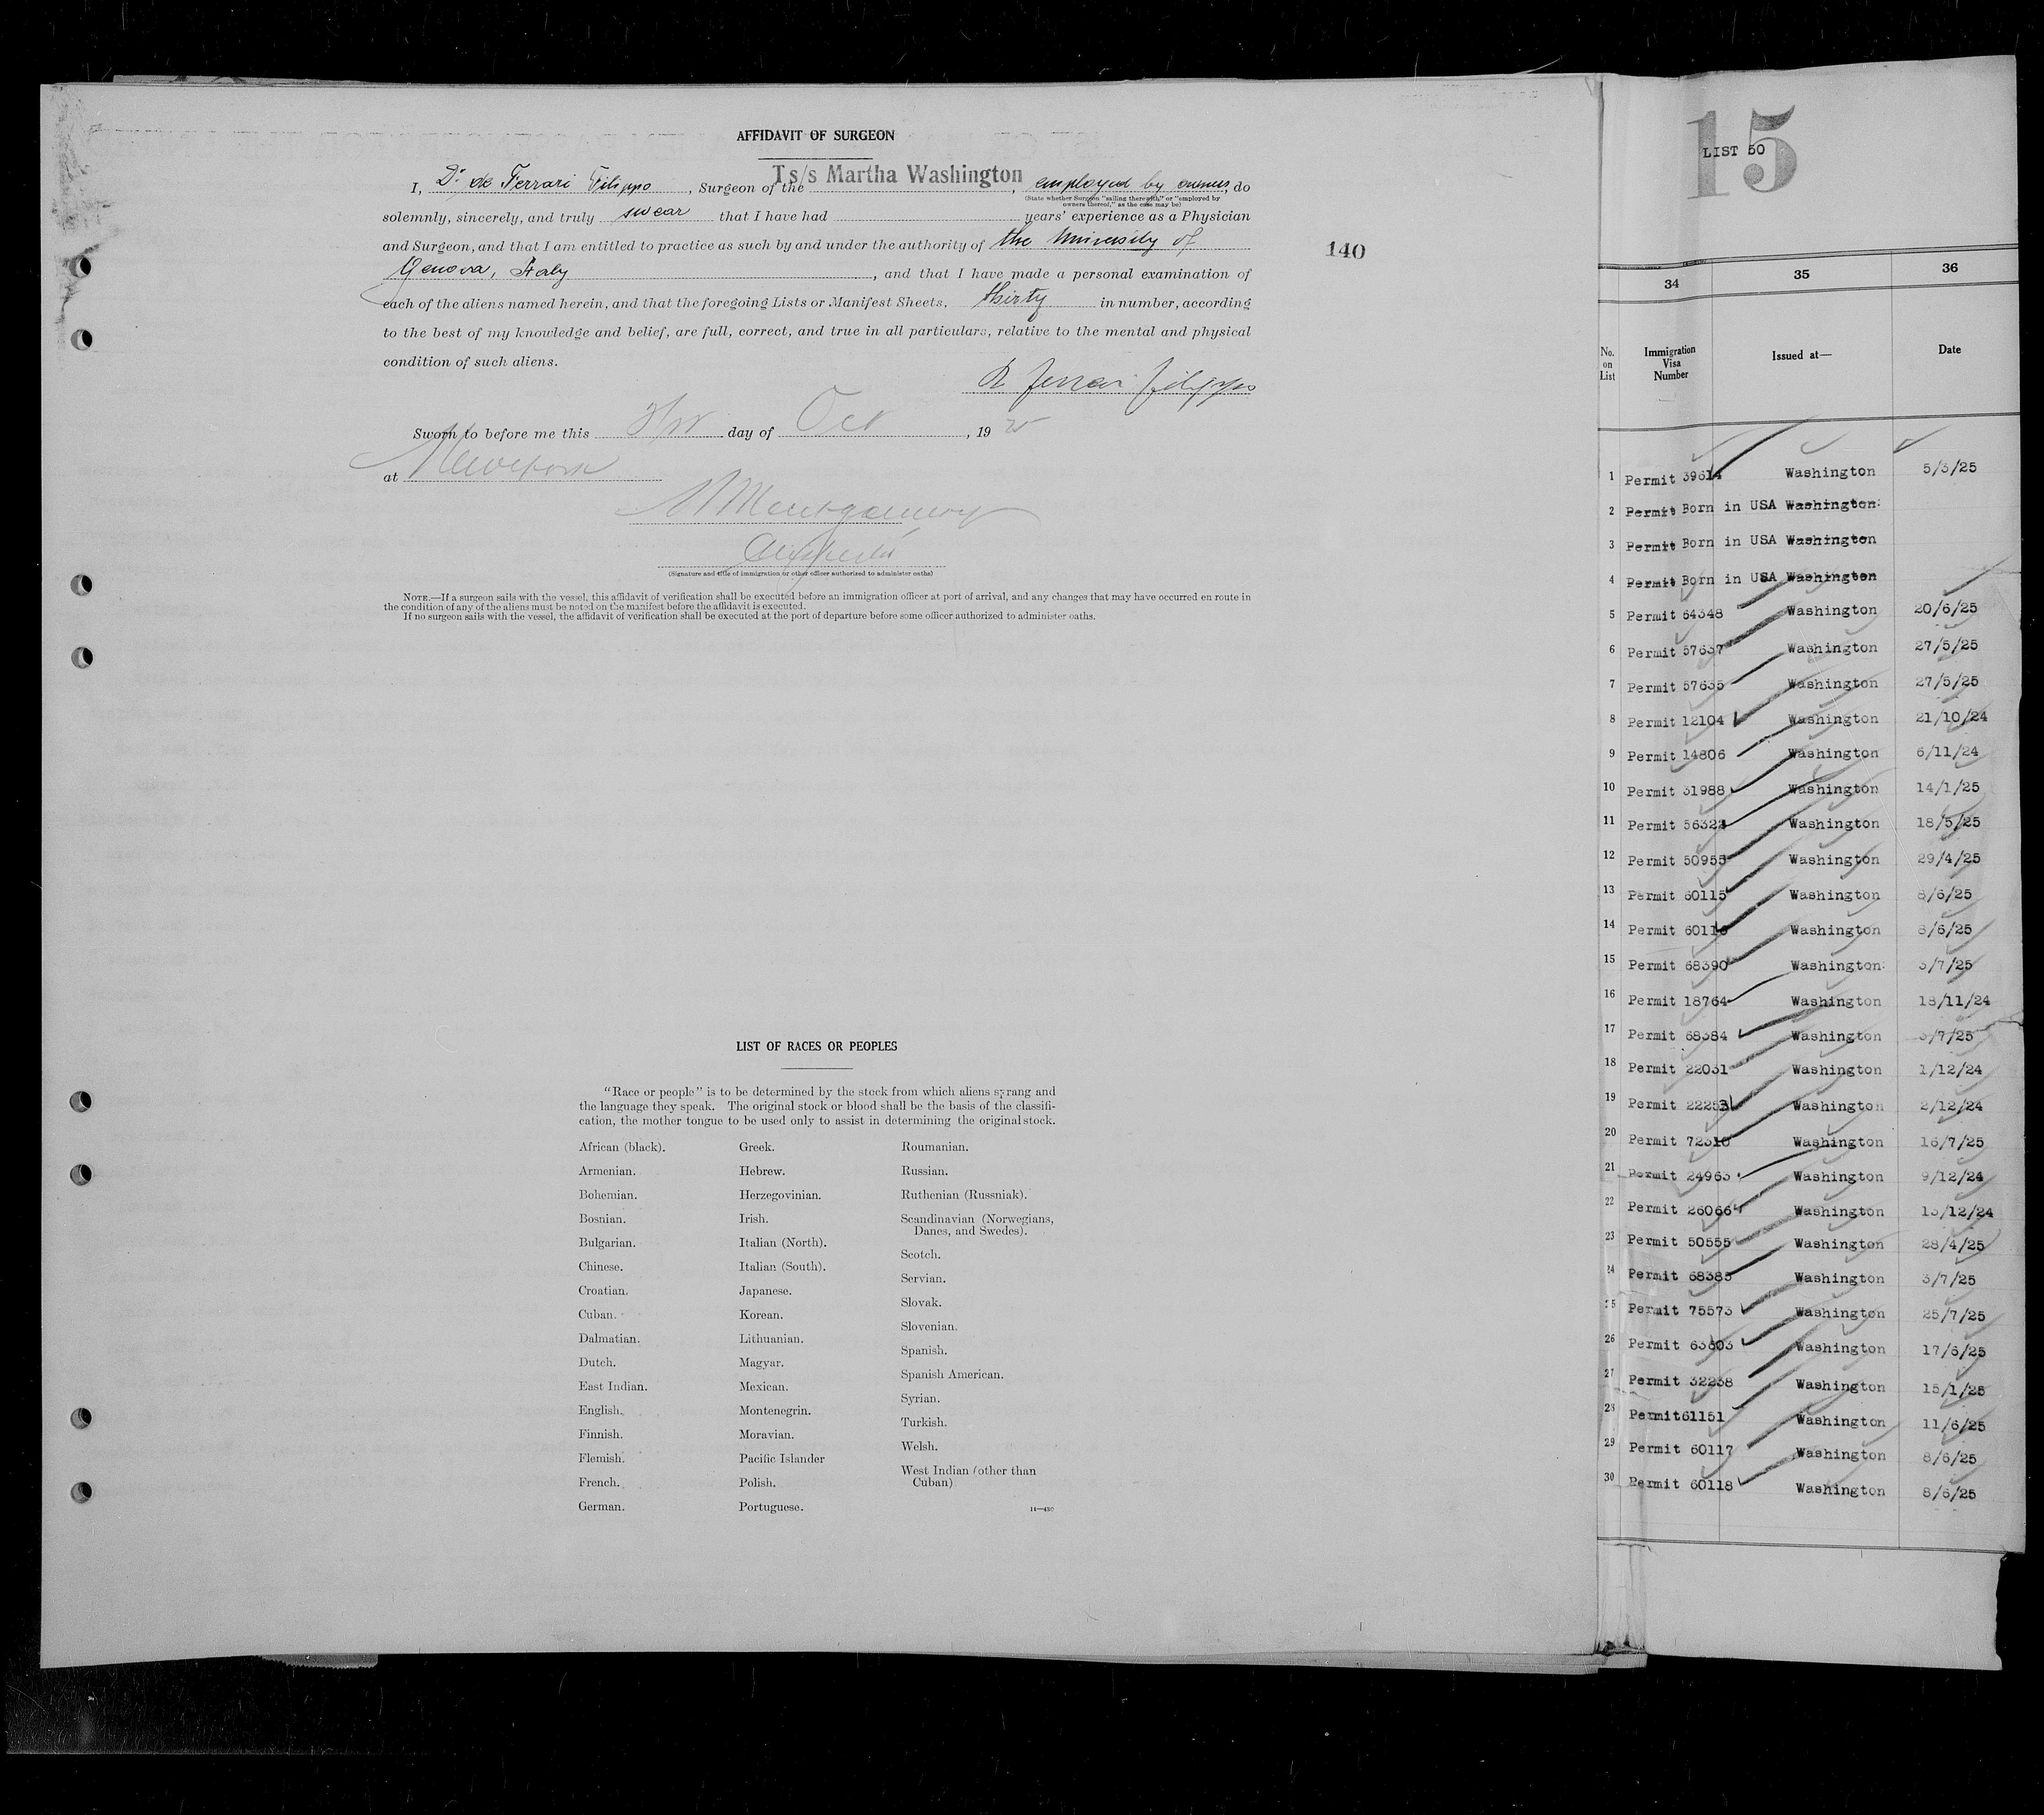 AFFIDAVIT OF SURGEON
I, Dr. de Ferrari Filippo, Surgeon of the Ts/s Martha Washington, employed by owners, do
(State whether Surgeon "sailing therewith" or "employed by
owners thereof," as the case may be)
solemnly, sincerely, and truly swear that I have had years' experience as a Physician
and Surgeon, and that I am entitled to practice as such by and under the authority of the University of
Genova, Italy, and that I have made a personal examination of
each of the aliens named herein, and that the foregoing Lists or Manifest Sheets, thirty in number, according
to the best of my knowledge and belief, are full, correct, and true in all particulars, relative to the mental and physical
condition of such aliens.
Ferrari Filippo
Sworn to before me this day of Oct, 19 25
at New York
Montgomery
(Signature and title of immigration or other officer authorized to administer oaths)
NOTE.—If a surgeon sails with the vessel, this affidavit of verification shall be executed before an immigration officer at port of arrival, and any changes that may have occurred en route in
the condition of any of the aliens must be noted on the manifest before the affidavit is executed.
If no surgeon sails with the vessel, the affidavit of verification shall be executed at the port of departure before some officer authorized to administer oaths.
140
LIST OF RACES OR PEOPLES
"Race or people" is to be determined by the stock from which aliens sprang and
the language they speak. The original stock or blood shall be the basis of the classifi-
cation, the mother tongue to be used only to assist in determining the original stock.
African (black).
Armenian.
Bohemian.
Bosnian.
Bulgarian.
Chinese.
Croatian.
Cuban.
Dalmatian.
Dutch.
East Indian.
English.
Finnish.
Flemish.
French.
German.
Greek.
Hebrew.
Herzegovinian.
Irish.
Italian (North).
Italian (South).
Japanese.
Korean.
Lithuanian.
Magyar.
Mexican.
Montenegrin.
Moravian.
Pacific Islander
Polish.
Portuguese.
Roumanian.
Russian.
Ruthenian (Russniak).
Scandinavian (Norwegians,
Danes, and Swedes).
Scotch.
Servian.
Slovak.
Slovenian.
Spanish.
Spanish American.
Syrian.
Turkish.
Welsh.
West Indian (other than
Cuban)
15
LIST 50
34 35 36
No. on List Immigration Visa Number Issued at— Date
1 Permit 39614 Washington 5/3/25
2 Permit Born in USA Washington
3 Permit Born in USA Washington
4 Permit Born in USA Washington
5 Permit 64348 Washington 20/6/25
6 Permit 57637 Washington 27/5/25
7 Permit 57635 Washington 27/5/25
8 Permit 12104 Washington 21/10/24
9 Permit 14806 Washington 6/11/24
10 Permit 31988 Washington 14/1/25
11 Permit Washington 18/5/25
12 Permit 50955 Washington 29/4/25
13 Permit 60115 Washington 8/6/25
14 Permit 60116 Washington 8/6/25
15 Permit 68390 Washington 3/7/25
16 Permit 18764 Washington 18/11/24
17 Permit 68384 Washington 3/7/25
18 Permit 22031 Washington 1/12/24
19 Permit 22253 Washington 2/12/24
20 Permit 72316 Washington 16/7/25
21 Permit 24963 Washington 9/12/24
22 Permit 26066 Washington 13/12/24
23 Permit 50555 Washington 28/4/25
24 Permit 68385 Washington 3/7/25
25 Permit 75573 Washington 25/7/25
26 Permit 63603 Washington 17/6/25
27 Permit 32238 Washington 15/1/25
28 Permit 61151 Washington 11/6/25
29 Permit 60117 Washington 8/6/25
30 Permit 60118 Washington 8/6/25